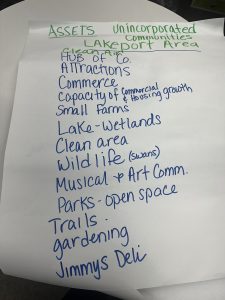 ASSETS Unincorporated
Communities
LAKEPORT Area
Clean Air
HUB of Co.
Attractions
Commerce
Capacity of Commercial
& Housing growth
Small Farms
Lake-Wetlands
Clean area
Wildlife (swans)
Musical & Art Comm.
Parks-open space
Trails.
gardening
Jimmys Deli